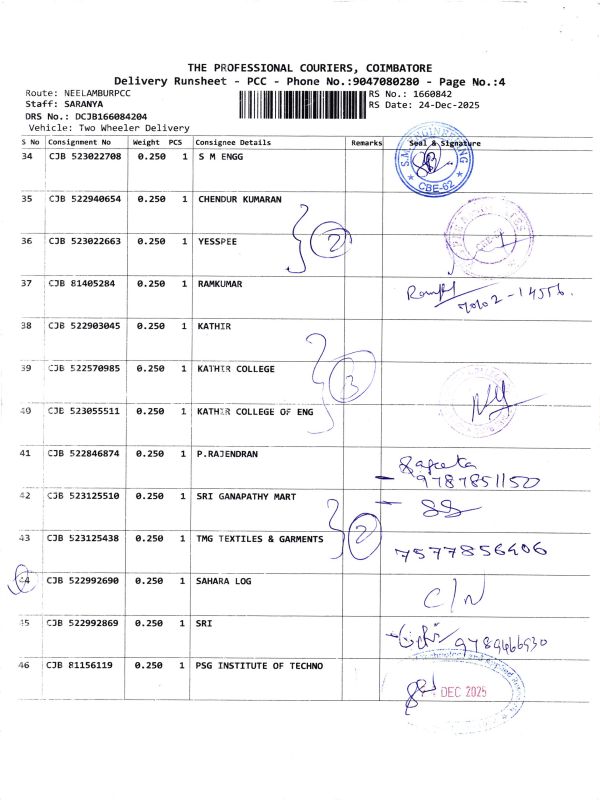 THE PROFESSIONAL COURIERS, COIMBATORE
Delivery Runsheet - PCC - Phone No.:9047080280 - Page No.:4
Route: NEELAMBURPCC
RS No.: 1660842
Staff: SARANYA
RS Date: 24-Dec-2025
DRS No.: DCJB166084204
Vehicle: Two Wheeler Delivery
S No Consignment No Weight PCS Consignee Details Remarks Seal & Signature
34 CJB 523022708 0.250 1 S M ENGG
S.M. ENGINEERING
CBE-62
35 CJB 522940654 0.250 1 CHENDUR KUMARAN
2
CBE-62
36 CJB 523022663 0.250 1 YESSPEE
37 CJB 81405284 0.250 1 RAMKUMAR
38 CJB 522903045 0.250 1 KATHIR
39 CJB 522570985 0.250 1 KATHIR COLLEGE
3
40 CJB 523055511 0.250 1 KATHIR COLLEGE OF ENG
41 CJB 522846874 0.250 1 P.RAJENDRAN
9787851150
42 CJB 523125510 0.250 1 SRI GANAPATHY MART
2
43 CJB 523125438 0.250 1 TMG TEXTILES & GARMENTS
7577856406
44 CJB 522992690 0.250 1 SAHARA LOG
C/N
45 CJB 522992869 0.250 1 SRI
9789466930
46 CJB 81156119 0.250 1 PSG INSTITUTE OF TECHNO
DEC 2025